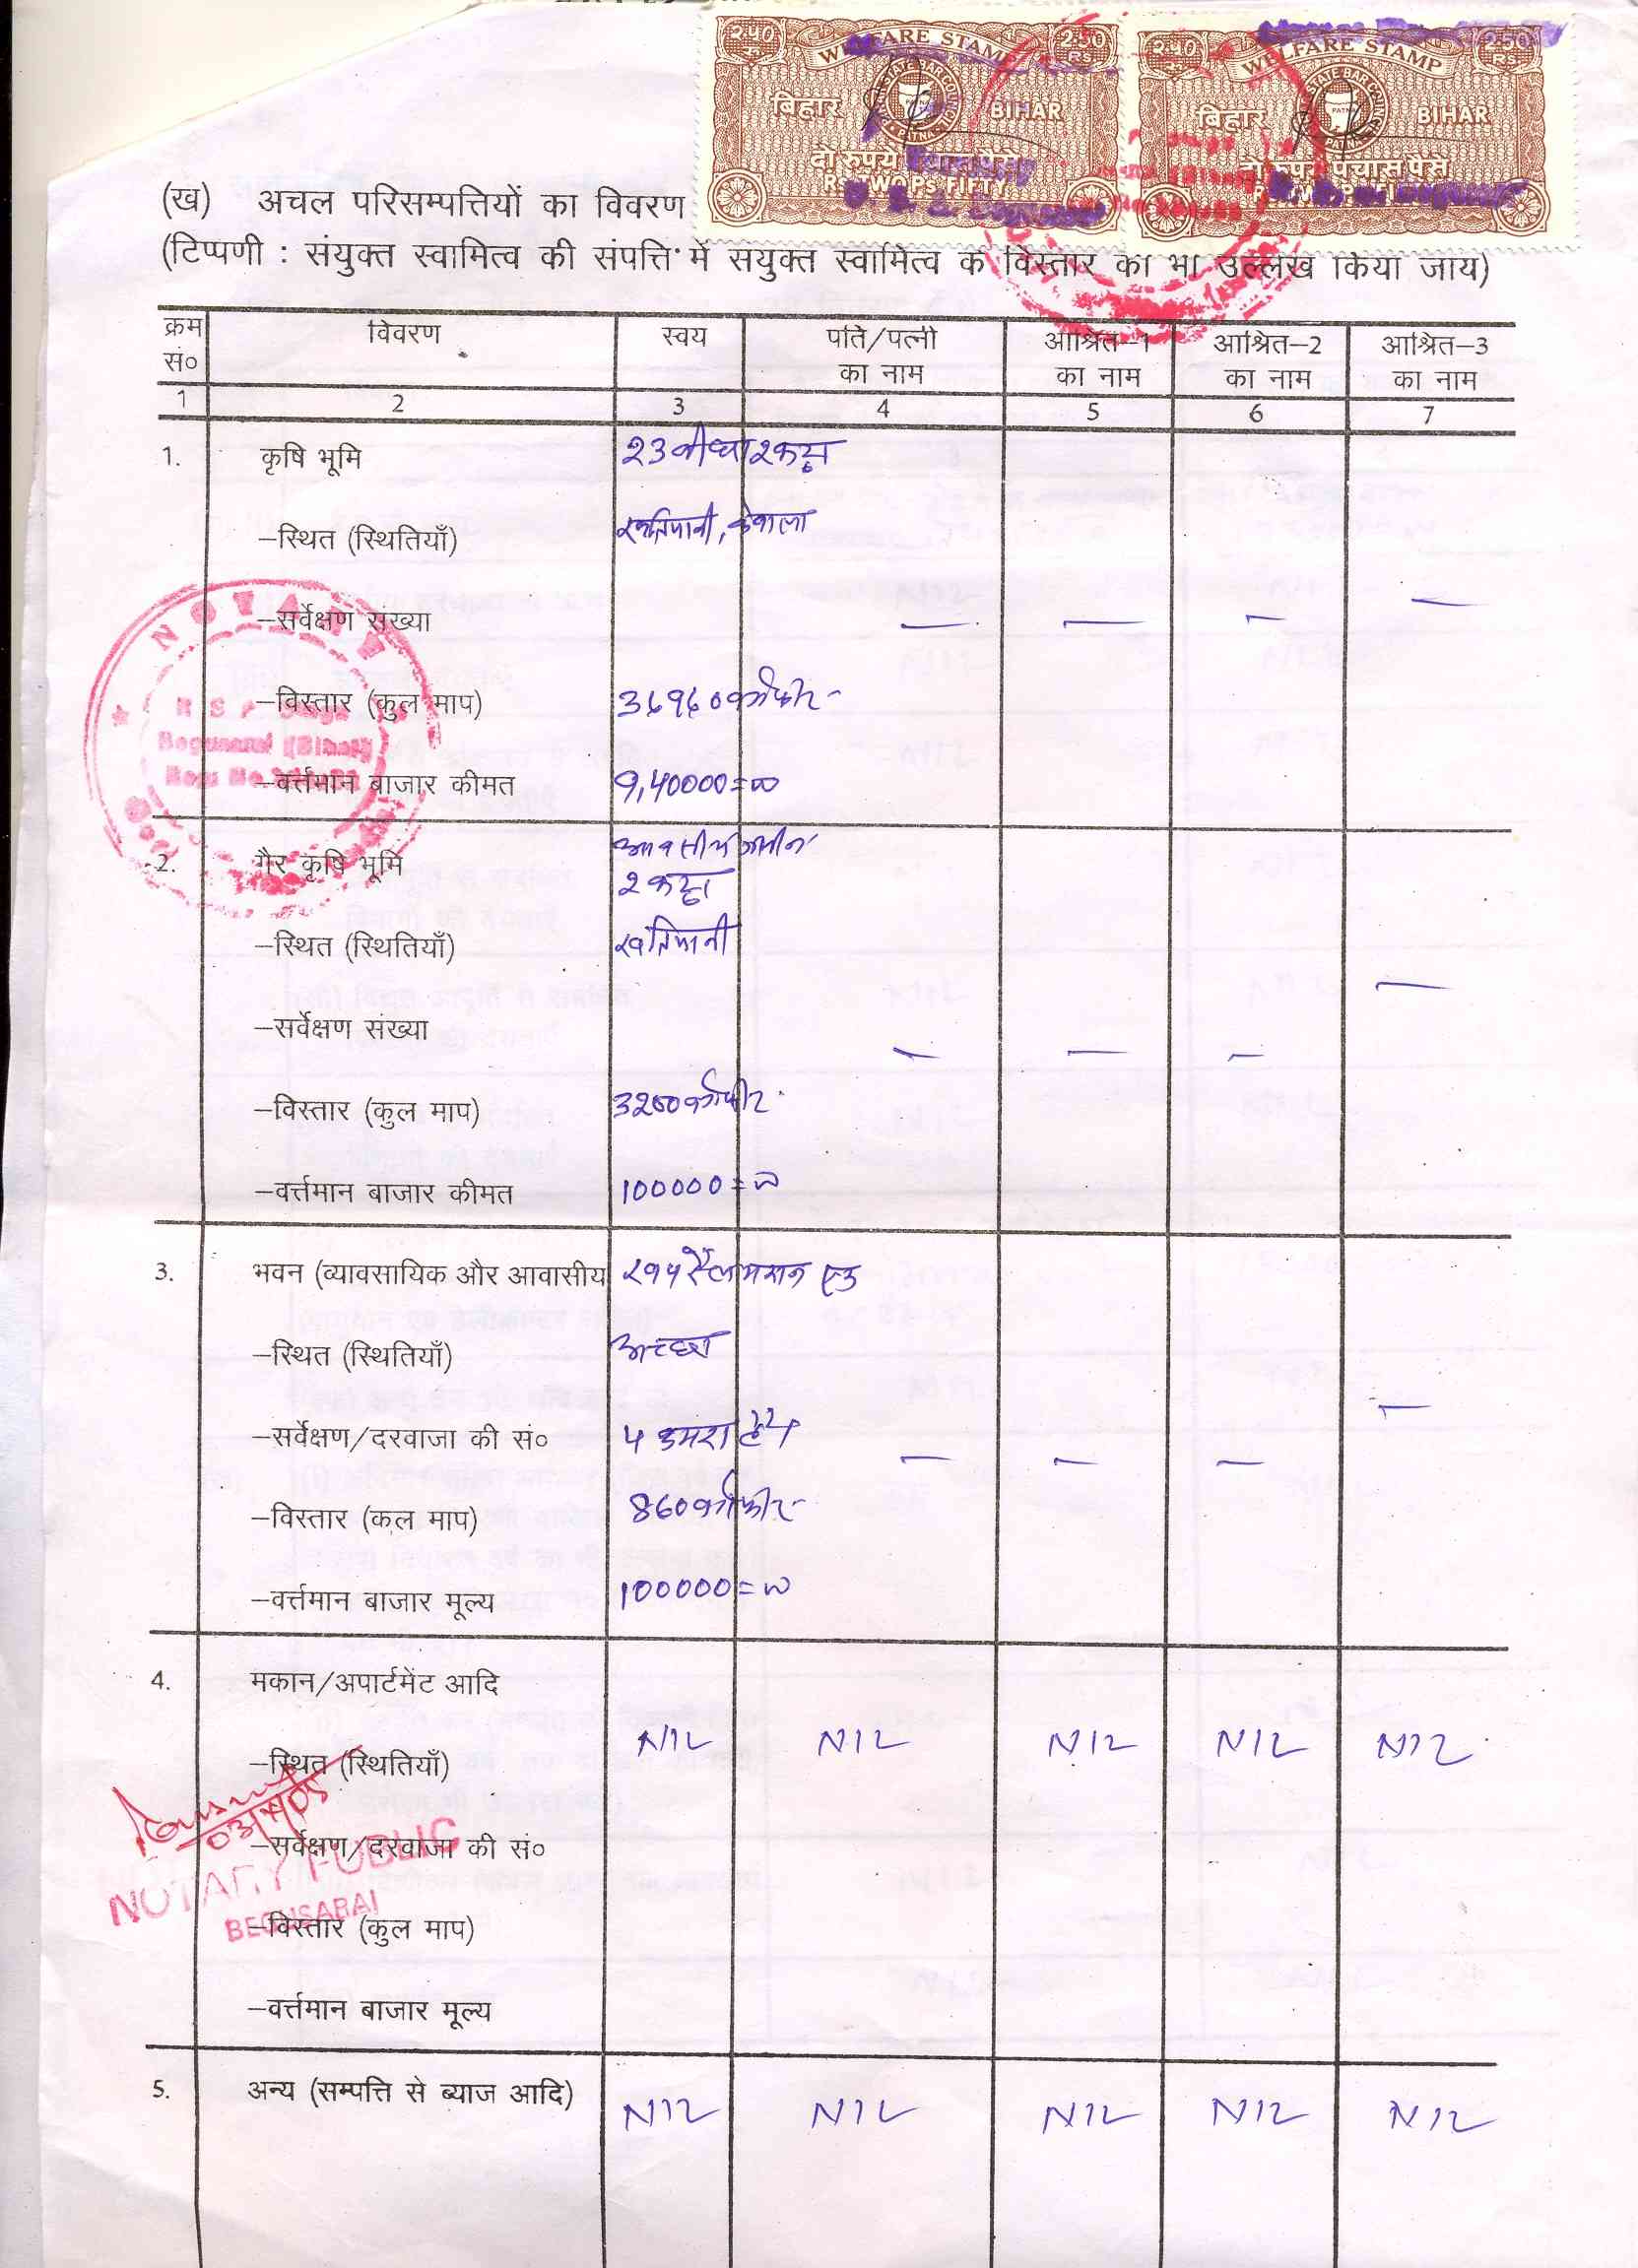 २५० रु० WELFARE STAMP 250 RS
बिहार STATE BAR COUNCIL PATNA BIHAR
दो रुपये पचास पैसे
RS. TWO PS. FIFTY
२५० रु० WELFARE STAMP 250 RS
बिहार STATE BAR COUNCIL PATNA BIHAR
दो रुपये पचास पैसे
(ख) अचल परिसम्पत्तियों का विवरण
(टिप्पणी : संयुक्त स्वामित्व की संपत्ति में संयुक्त स्वामित्व के विस्तार का भी उल्लेख किया जाय)
क्रम सं० विवरण स्वय पति/पत्नी का नाम आश्रित–1 का नाम आश्रित–2 का नाम आश्रित–3 का नाम
1 2 3 4 5 6 7
1. कृषि भूमि 23 बीघा 2 कट्ठा
–स्थित (स्थितियाँ)
–सर्वेक्षण संख्या — — — —
–विस्तार (कुल माप)
–वर्त्तमान बाजार कीमत 9,40000=00
NOTARY
Begusarai (Bihar)
2. गैर कृषि भूमि आवसीय जमीन
2 कट्ठा
–स्थित (स्थितियाँ) खतियानी
–सर्वेक्षण संख्या — — — —
–विस्तार (कुल माप) 3200 वर्गफीट
–वर्त्तमान बाजार कीमत 100000=00
3. भवन (व्यावसायिक और आवासीय खपरैल मकान एक
–स्थित (स्थितियाँ) अच्छा
–सर्वेक्षण/दरवाजा की सं० — — — —
–विस्तार (कल माप) 860 वर्गफीट
–वर्त्तमान बाजार मूल्य 100000=00
4. मकान/अपार्टमेंट आदि
–स्थित (स्थितियाँ) NIL NIL NIL NIL NIL
–सर्वेक्षण/दरवाजा की सं०
–विस्तार (कुल माप)
–वर्त्तमान बाजार मूल्य
NOTARY PUBLIC
BEGUSARAI
5. अन्य (सम्पत्ति से ब्याज आदि) NIL NIL NIL NIL NIL